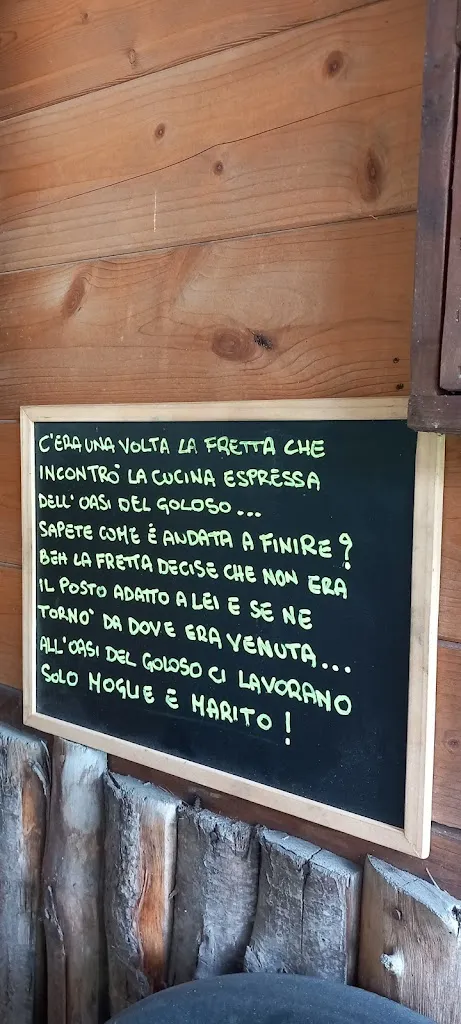 C'ERA UNA VOLTA LA FRETTA CHE
INCONTRO' LA CUCINA ESPRESSA
DELL' OASI DEL GOLOSO...
SAPETE COME É ANDATA A FINIRE?
BEH LA FRETTA DECISE CHE NON ERA
IL POSTO ADATTO A LEI E SE NE
TORNO' DA DOVE ERA VENUTA...
ALL'OASI DEL GOLOSO CI LAVORANO
SOLO MOGLIE E MARITO!